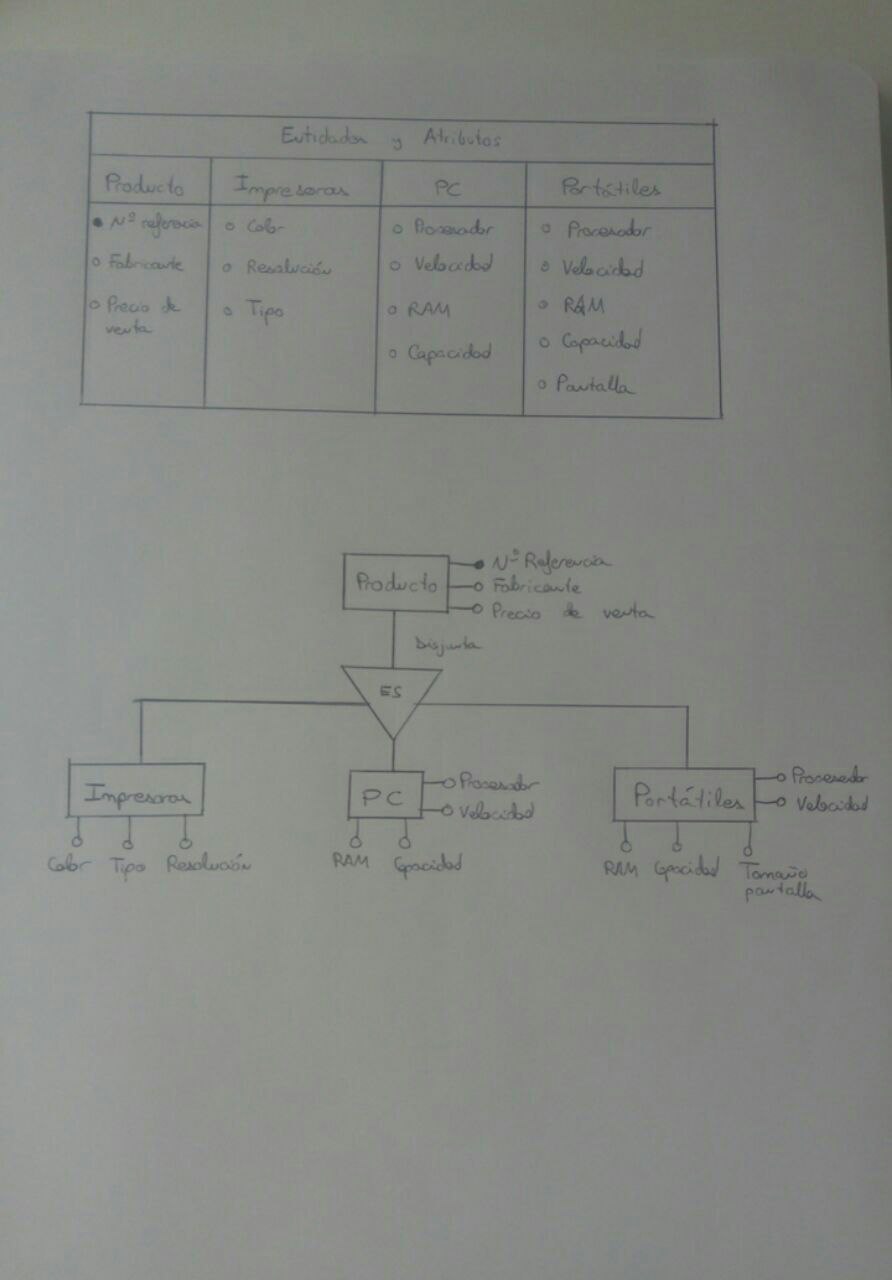 Entidades y Atributos
Producto
Impresoras
PC
Portátiles
Nº referencia
Fabricante
Precio de
venta
Color
Resolución
Tipo
Procesador
Velocidad
RAM
Capacidad
Procesador
Velocidad
RAM
Capacidad
Pantalla
Producto
Nº Referencia
Fabricante
Precio de venta
Disjunta
ES
Impresoras
Color
Tipo
Resolución
PC
Procesador
Velocidad
RAM
Capacidad
Portátiles
Procesador
Velocidad
RAM
Capacidad
Tamaño
pantalla